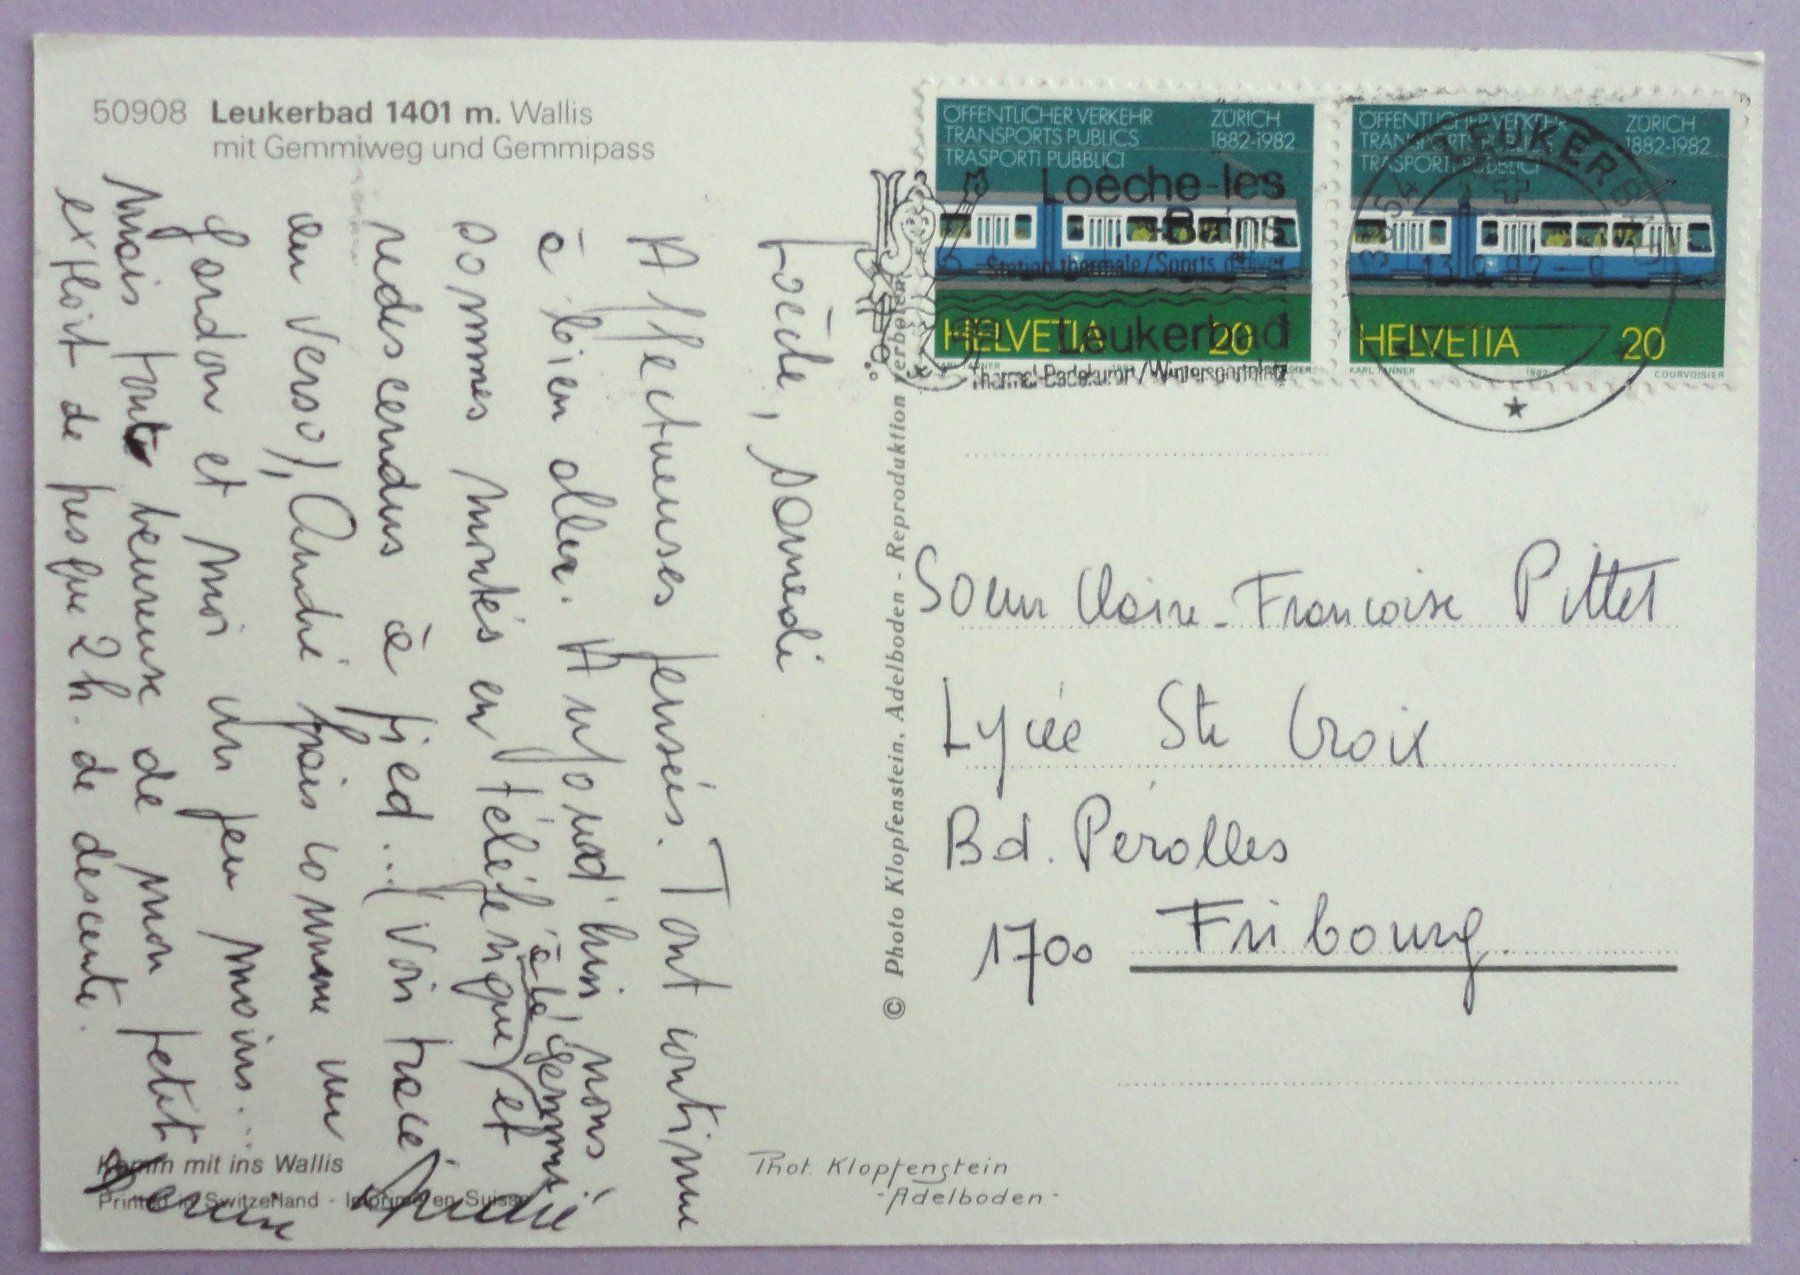 50908 Leukerbad 1401 m. Wallis
mit Gemmiweg und Gemmipass
Loèche, samedi
Affectueuses pensées. Tout continue
à bien aller. Aujourd'hui, nous
sommes montés en téléférique (à la Gemmi) et
redescendus à pied... (voir tracé
au verso), André frais comme un
gardon et moi un peu moins...
mais toute heureuse de mon petit
exploit de presque 2 h. de descente.
André
Komm mit ins Wallis
Printed in Switzerland - Imprimé en Suisse
Phot. Klopfenstein
- Adelboden -
© Photo Klopfenstein, Adelboden - Reproduktion verboten
ÖFFENTLICHER VERKEHR ZÜRICH
TRANSPORTS PUBLICS 1882-1982
TRASPORTI PUBBLICI
HELVETIA 20
ÖFFENTLICHER VERKEHR ZÜRICH
TRANSPORTS PUBLICS 1882-1982
TRASPORTI PUBBLICI
HELVETIA 20
KARL TANNER 1982 COURVOISIER
Loèche-les
Bains
Station thermale/Sports d'hiver
Leukerbad
Thermal-Badekurort/Wintersportplatz
3954 LEUKERBAD
Soeur Claire-Françoise Pittet
Lycée Ste Croix
Bd. Pérolles
1700 Fribourg